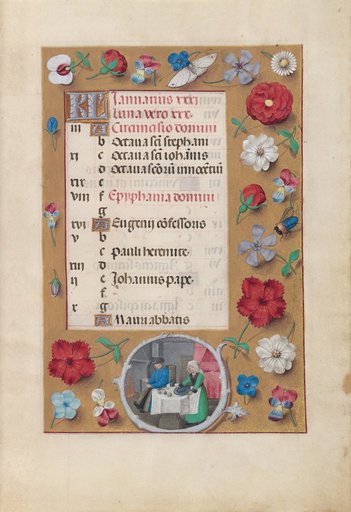 KL Januarius xxxi
luna vero xxx.
iii A Circuncisio domini
b Octava scī stephani
xi c Octava scī iohānis
d Octava scōrū innocētū
xix e
viii f Epyphania domini
g
xvi A Eugenii cōfessoris
v b
c Pauli heremite.
xiii d
ii e Johannis pape.
f
x g
A Mauri abbatis